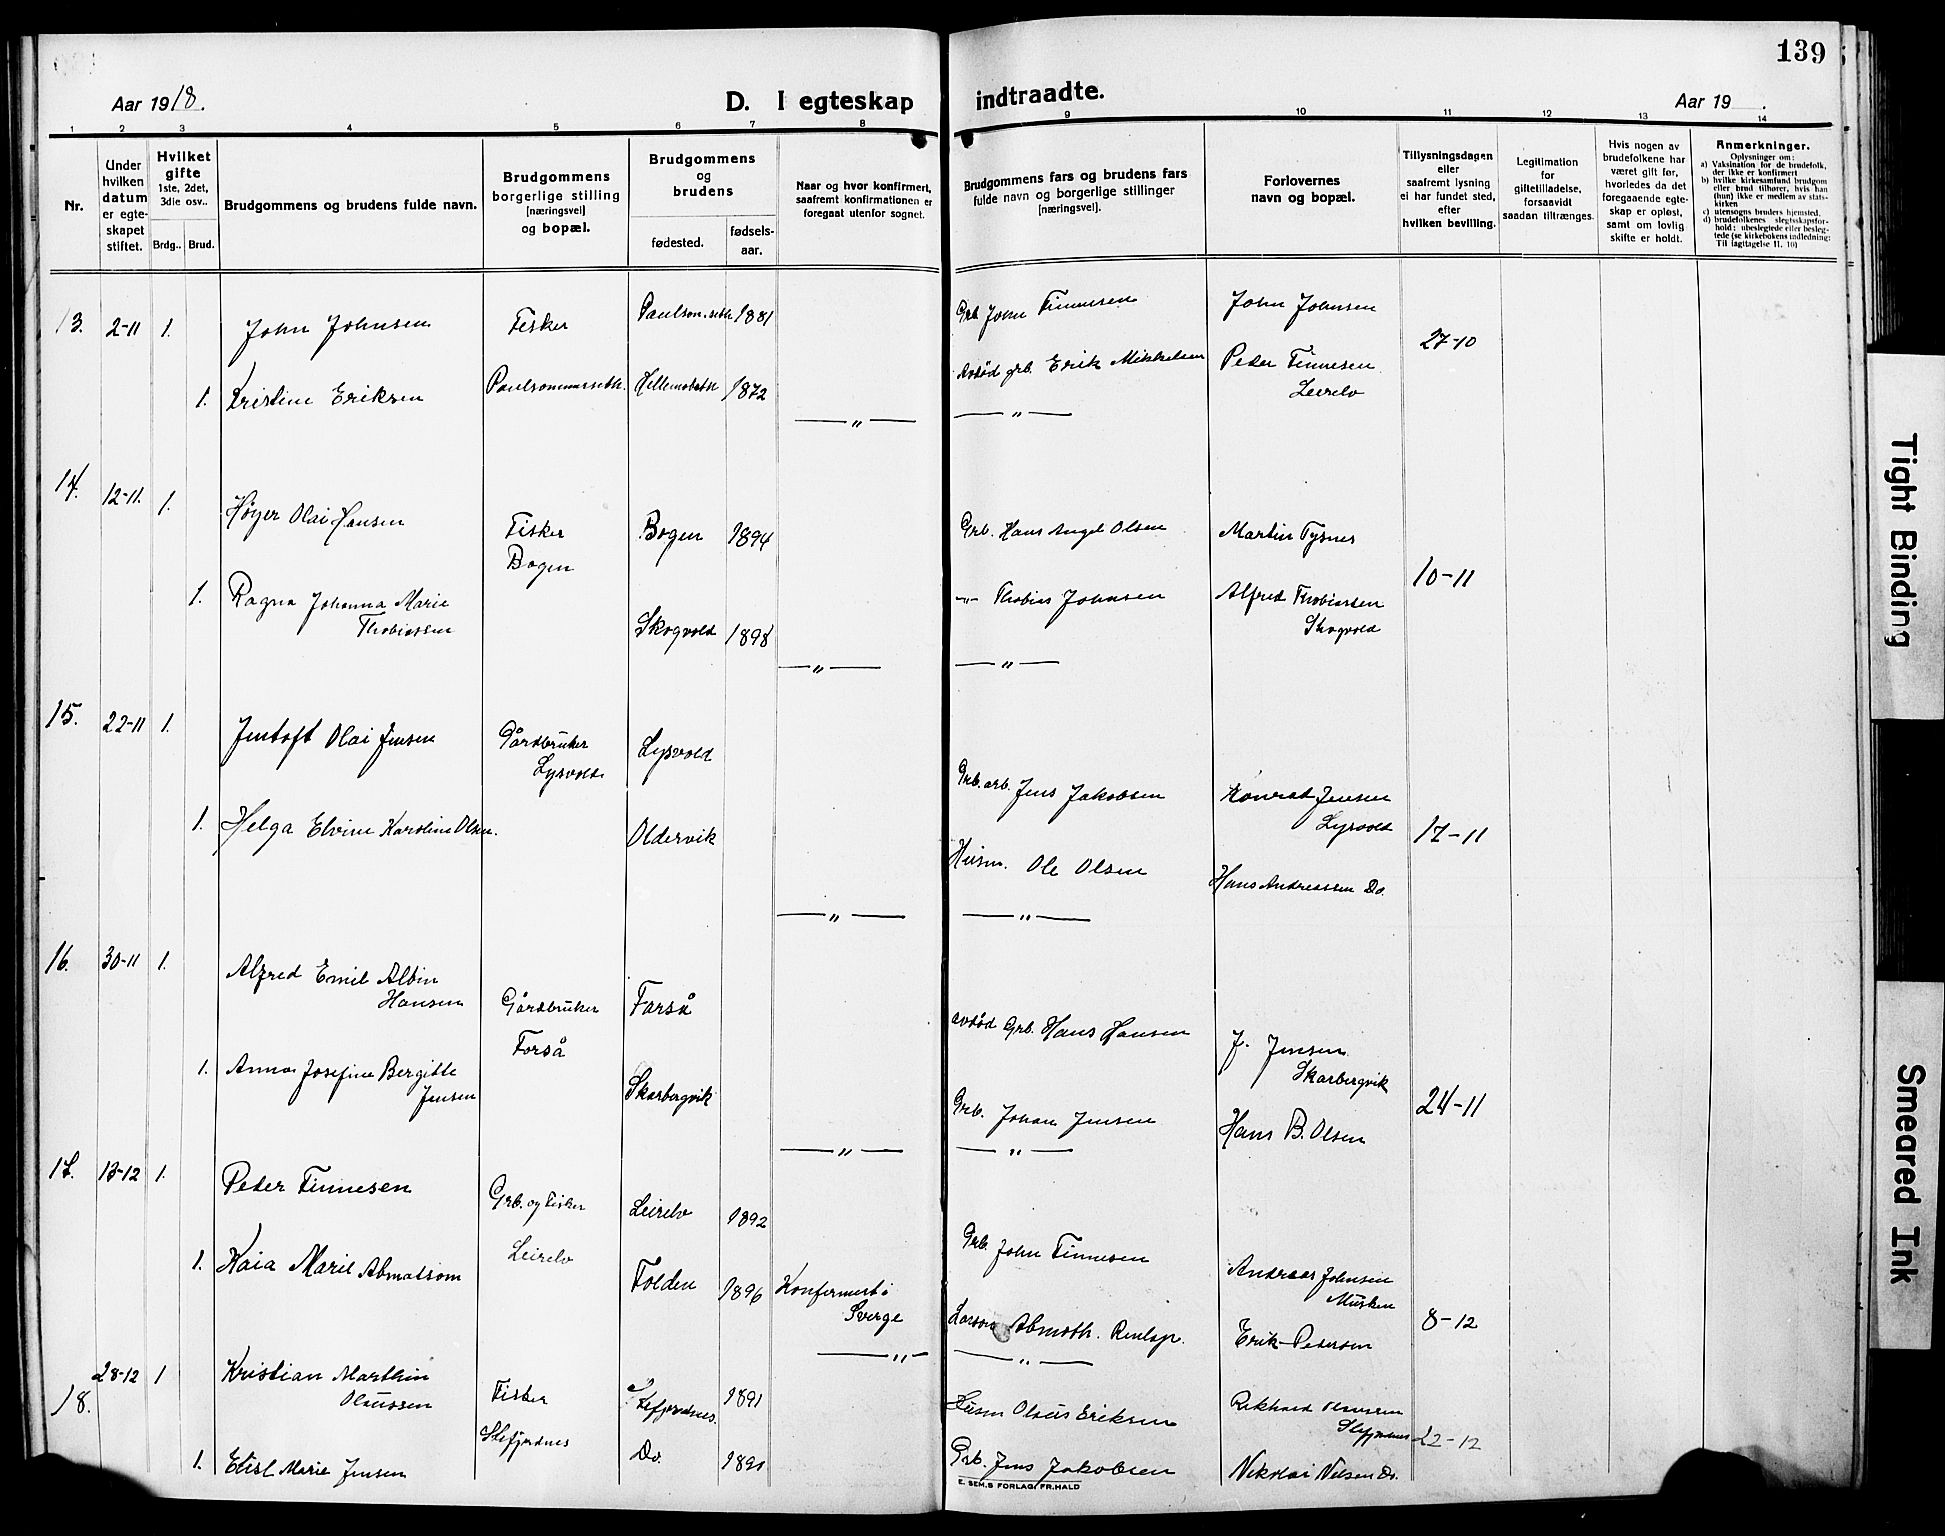 139
Aar 1918.
D. I egteskap
indtraadte.
Aar 19 .
1 2 3 4 5 6 7 8 9 10 11 12 13 14
Nr.
Under
hvilken
datum
er egte-
skapet
stiftet.
Hvilket
gifte
1ste, 2det,
3die osv..
Brdg.. Brud.
Brudgommens og brudens fulde navn.
Brudgommens
borgerlige stilling
[næringsvei]
og bopæl.
Brudgommens
og
brudens
fødested.
fødsels-
aar.
Naar og hvor konfirmert,
saafremt konfirmationen er
foregaat utenfor sognet.
Brudgommens fars og brudens fars
fulde navn og borgerlige stillinger
[næringsvei].
Forlovernes
navn og bopæl.
Tillysningsdagen
eller
saafremt lysning
ei har fundet sted,
efter
hvilken bevilling.
Legitimation
for
giftetilladelse,
forsaavidt
saadan tiltrænges.
Hvis nogen av
brudefolkene har
været gift før,
hvorledes da det
foregaaende egte-
skap er opløst,
samt om lovlig
skifte er holdt.
Anmerkninger.
Oplysninger om:
a) Vaksination for de brudefolk,
der ikke er konfirmert
b) hvilke kirkesamfund brudgom
eller brud tilhører, hvis han
(hun) ikke er medlem av stats-
kirken
c) utensogns bruders hjemsted.
d) brudefolkenes slegtsskapsfor-
hold: ubeslegtede eller besleg-
tede (se kirkebokens indledning:
Til iagttagelse II. 10)
13. 2-11 1. John Johnsen Fisker 1881 Grb. John Finnesen John Johnsen
27-10
1. Kristine Eriksen 1872 Avdød grb. Erik Mikkelsen Peder Finnesen
Leirelv
— " — — " —
14. 12-11. 1. Høyer Olai Hansen Fisker Bogen 1894 Grb. Hans Angel Olsen Martin Tysnes
Bogen
10-11
1. Ragna Johanna Marie -"- Thobias Johnsen Alfred Thobiassen
Thobiassen Skogvold 1898 Skogvold
— " — — " —
15. 22-11 1. Jentoft Olai Jensen Gårdbruker Lysvold
Lysvold
Grb. arb. Jens Jakobsen Konrad Jensen
Lysvold
1. Helga Elvine Karoline Olsen. Oldervik 17-11
Husm. Ole Olsen Hans Andreassen Do.
— " — — " —
16. 30-11 1. Alfred Emil Albin
Hansen Gårdbruker Forså
Forså
avdød Grb. Hans Hansen J. Jensen
Skarbergvik
1. Anna Josefine Bergitte
Jensen Skarbergvik
24-11
Grb. Johan Jensen Hans B. Olsen
— " — — " —
17. 13-12 1. Peder Finnesen Grb. og Fisker Leirelv 1892
Leirelv
Grb. John Finnesen Andreas Johnsen
Musken
1. Kaia Marie Abmatsom Folden 1896 Konfirmert i
Sverge
8-12
Abmoth. Renlap. Erik Pedersen
— " — — " —
18. 28-12 1 Kristian Marthin
Olaussen Fisker Stefjordnes. 1891
Stefjordnes
Husm Olaus Eriksen Rikhard Olaussen
Stefjordnes
22-12
1. Etisl Marie Jensen Do. 1891 Grb. Jens Jakobsen Nikolai Nilsen Do.
E. SEM.S FORLAG, FR.HALD
Tight Binding
Smeared Ink